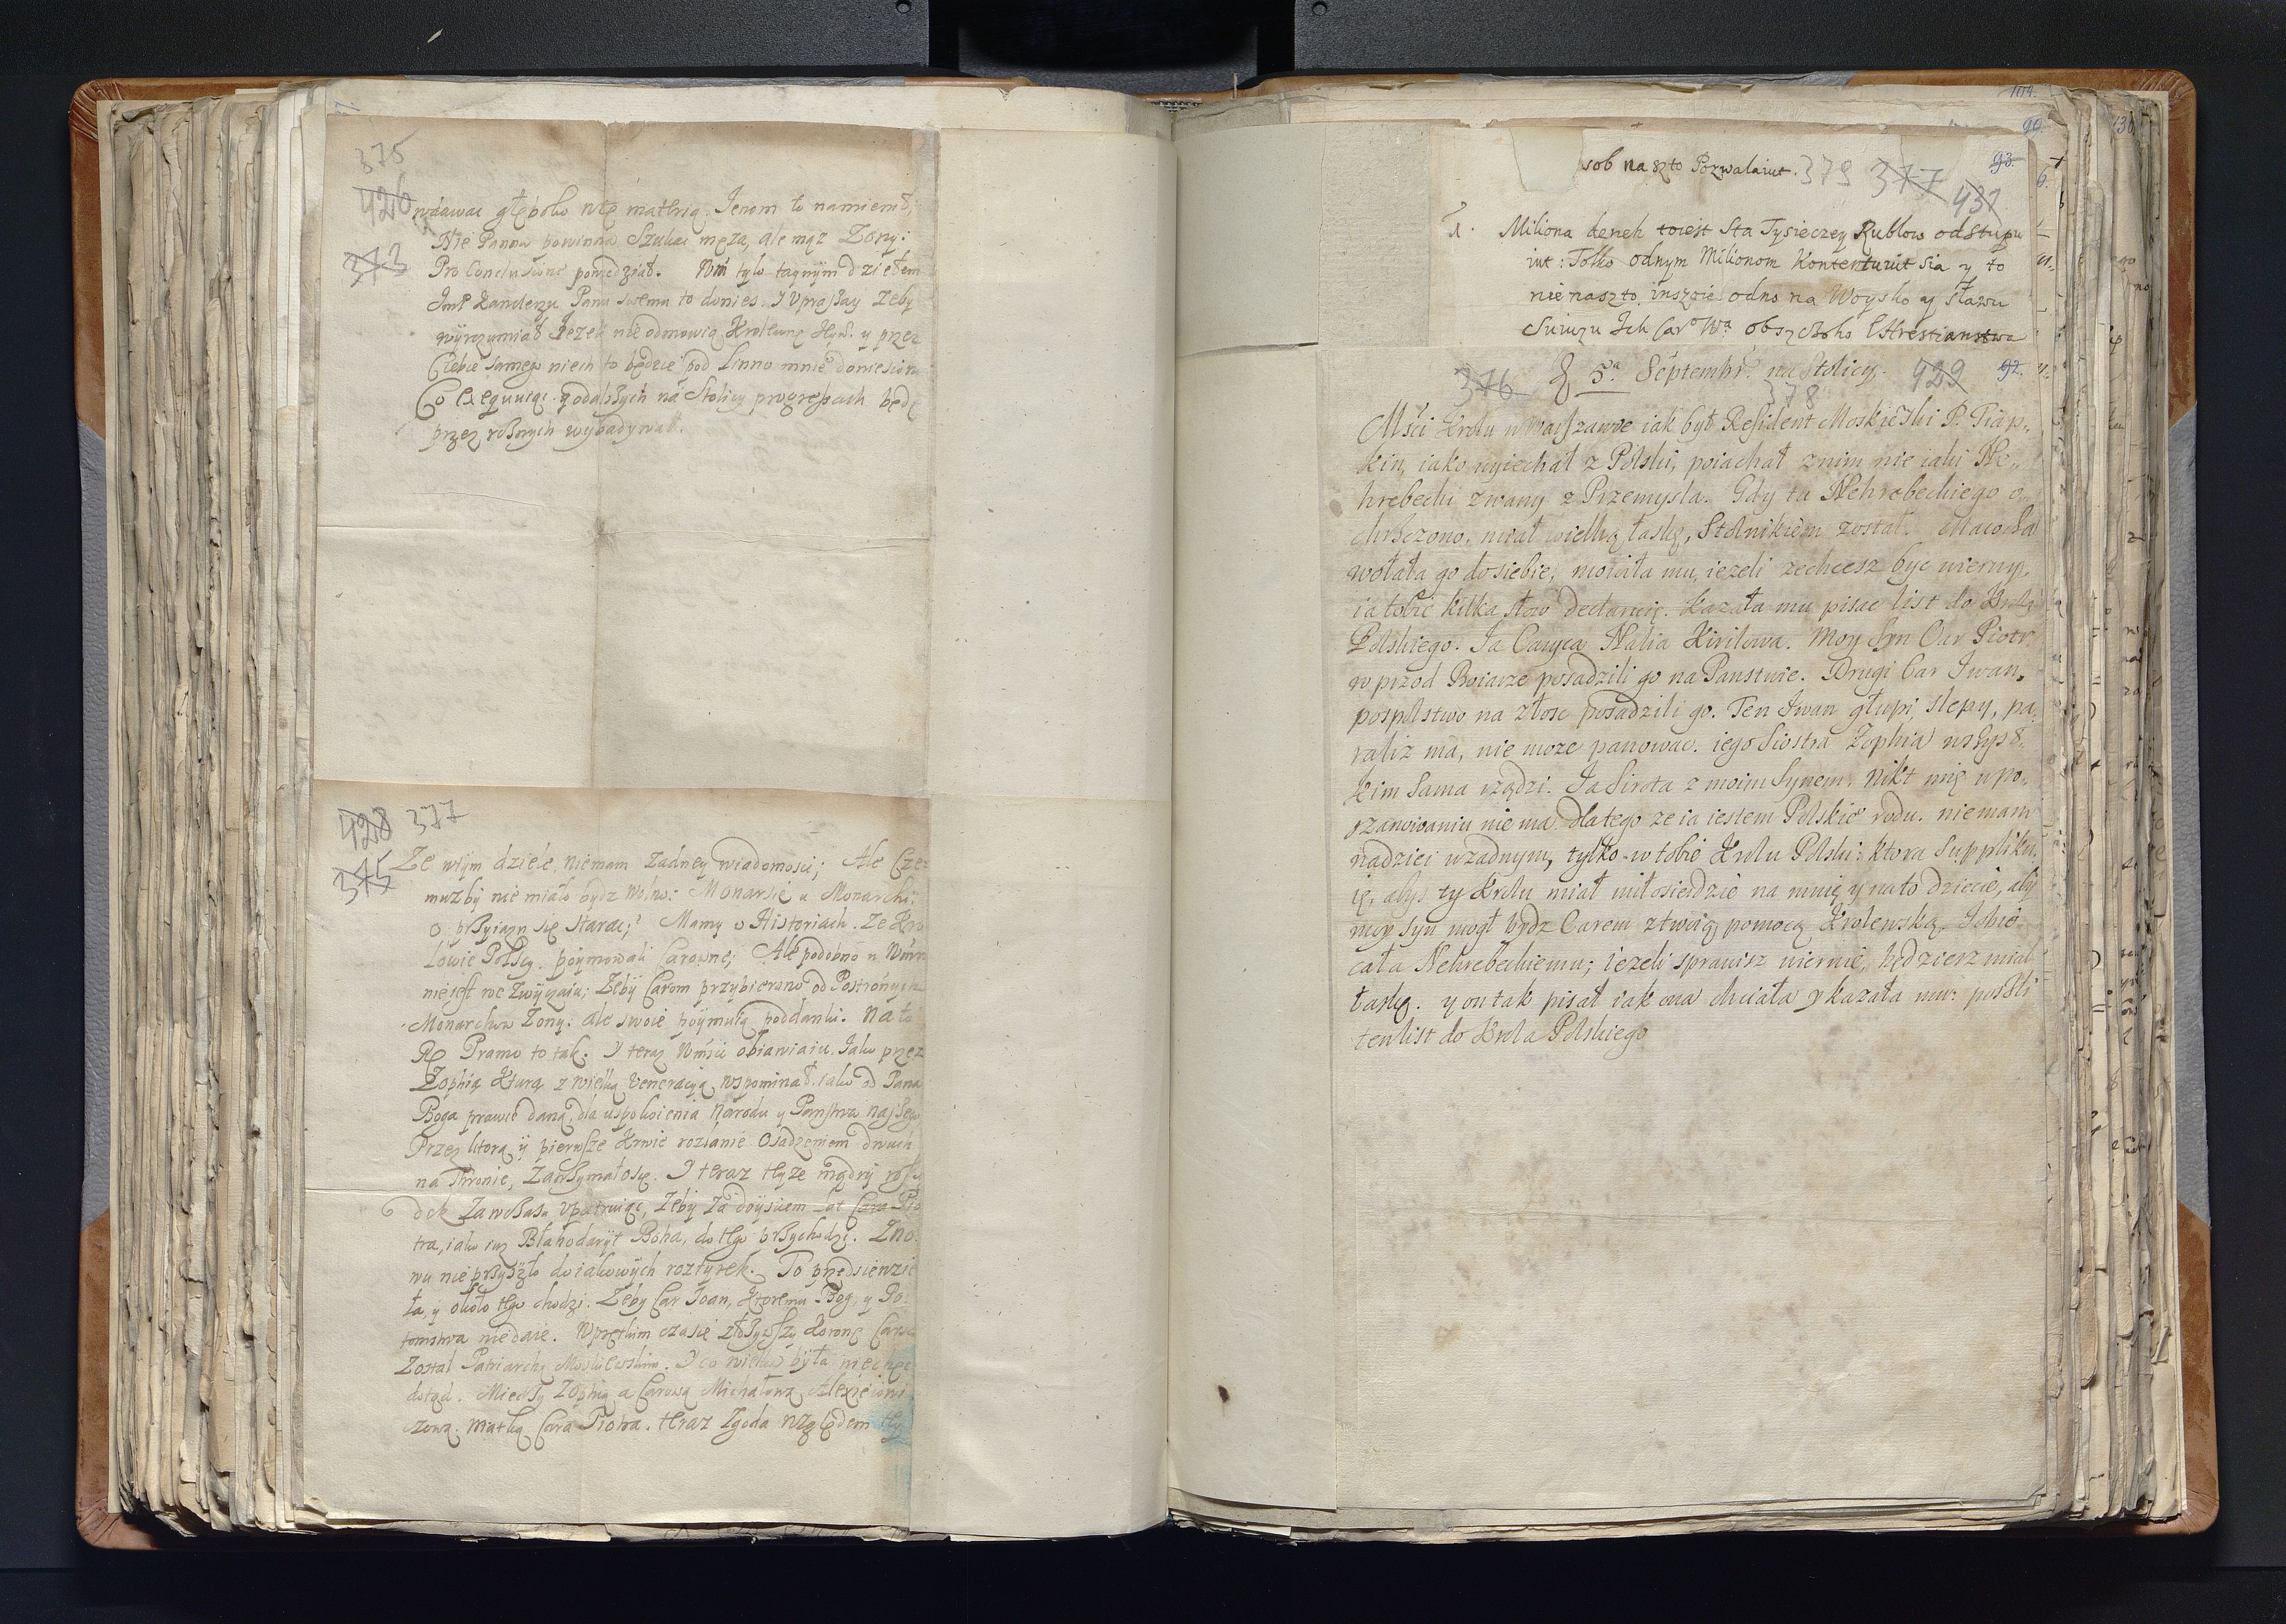 375
426
373
wdawac głęboko wtę mathnią. Jenom to namienił,
Nie Panna powinna Szukac męża, ale mąz Zony:
Pro Conclusione powiedział. Wm tylo taynym dziełem
Panu Swemu to donies. Y Upraszay Zeby
wyrozumiał Jezeli nie odmowią Krolewnę y przez
Ciebie samego niech to będzie pod Sinno mnie doniesiono
Co Exequuiąc. y o dalszych na Stolicy progressach będę
przez roznych wybadywał.
428 377
375
Ze wtym dziele, niemam Zadney wiadomosci; Ale Cze-
muzby nie miało bydz Wolno: Monarsie u Monarchi:
o przyiazn się Starac;? Mamy w Historiach. Ze Kro
lowie Polscy. poymowali Carowne; Ale podobno u Wm
nie jest we Zwyczaiu; Zeby Carom przybierano od Postronnych
Monarchow Zony: ale swoie poymuią poddanki. Na to
Rp Prawo to tak. Y teraz Wmsci obiawiaiu. Jako przez
Zophią Kturą z wielką Veneracyią wspominał, iako od Pana
Boga prawie daną, dla uspokoienia Narodu y Panstwa naszego
Przez ktorą y pierwsze Krwie rozlanie Osadzeniem dwuch
na Thronie, Zatrzymało się. Y teraz tyze mądry rozsą
dek Zawczasu Upatruiąc, Zeby Za doysciem lat Cara Pio
tra, iako iuz Błahodaryt Boha, do tego przychodzi. Zno
wu nie przyszło do iakowych roztyrek. To przedsiewzie
ta, y około tego chodzi. Zeby Car Joan, Ktoremu Bog, y Po
tomstwa niedaie. Wprętkim czasie złozywszy Koronę Carską
Został Patriarchą Moskiewskim. Y co wielka była niechęc
dotąd. Miedzy Zophią a Carową Michałową Alexieiewi
czową. Matką Cara Piotra. teraz Zgoda względem
104.
90.
93.
sob naszto Pozwalaiut. 379 377
431
Miliona deneh toiest Sta Tysieczey Rublow odstupu
iut: Tolko odnym Milionom Kontentuiut sia y to
nie naszto inszoie odno na Woysko y sławu
Suiuzu Ich Car° Wa obszczoho Chrestianstwa
376 5.a Septembr. na Stolicy. 378 429 92.
Msci Krolu w Warszawie iak był Resident Moskiewski P. Tiap-
kin, iako wyiechał z Polski, poiachał znim nie iaki Ne-
hrebecki zwany z Przemysla. Gdy tu Nehrebeckiego o-
chrzczono, miał wielką łaskę, Stolnikiem został. Macocha
wołała go do siebie, mowiła mu, iezeli zechcesz byc wierny,
ia tobie kilka słow declaruię. Kazała mu pisac list do Krola
Polskiego. Ja Caryca Nalia Kirilowa. Moy Syn Car Piotr
w przod Boiarze posadzili go na Panstwie. Drugi Car Iwan,
pospolstwo na złosc posadzili go. Ten Iwan głupi, slepy, pa-
raliz ma, nie moze panowac. iego Siostra Zophia wszyst-
kim sama rządzi. Ja Sirota z moim Synem. Nikt mię w po-
szanowaniu nie ma dlatego ze ia iestem Polskie° rodu. niemam
nadziei w zadnym, tylko w tobie Krolu Polski: ktora Suppliku-
ię, abys ty Krolu miał miłosierdzie na mnię y na to dziecie, aby
moy syn mogł bydz Carem z twoią pomocą Krolewską. Iobie-
cała Nehrebeckiemu; iezeli sprawisz wiernie, będziesz miał
łaskę. y on tak pisał iak ona chciała y kazała mu: posłali
ten list do Krola Polskiego